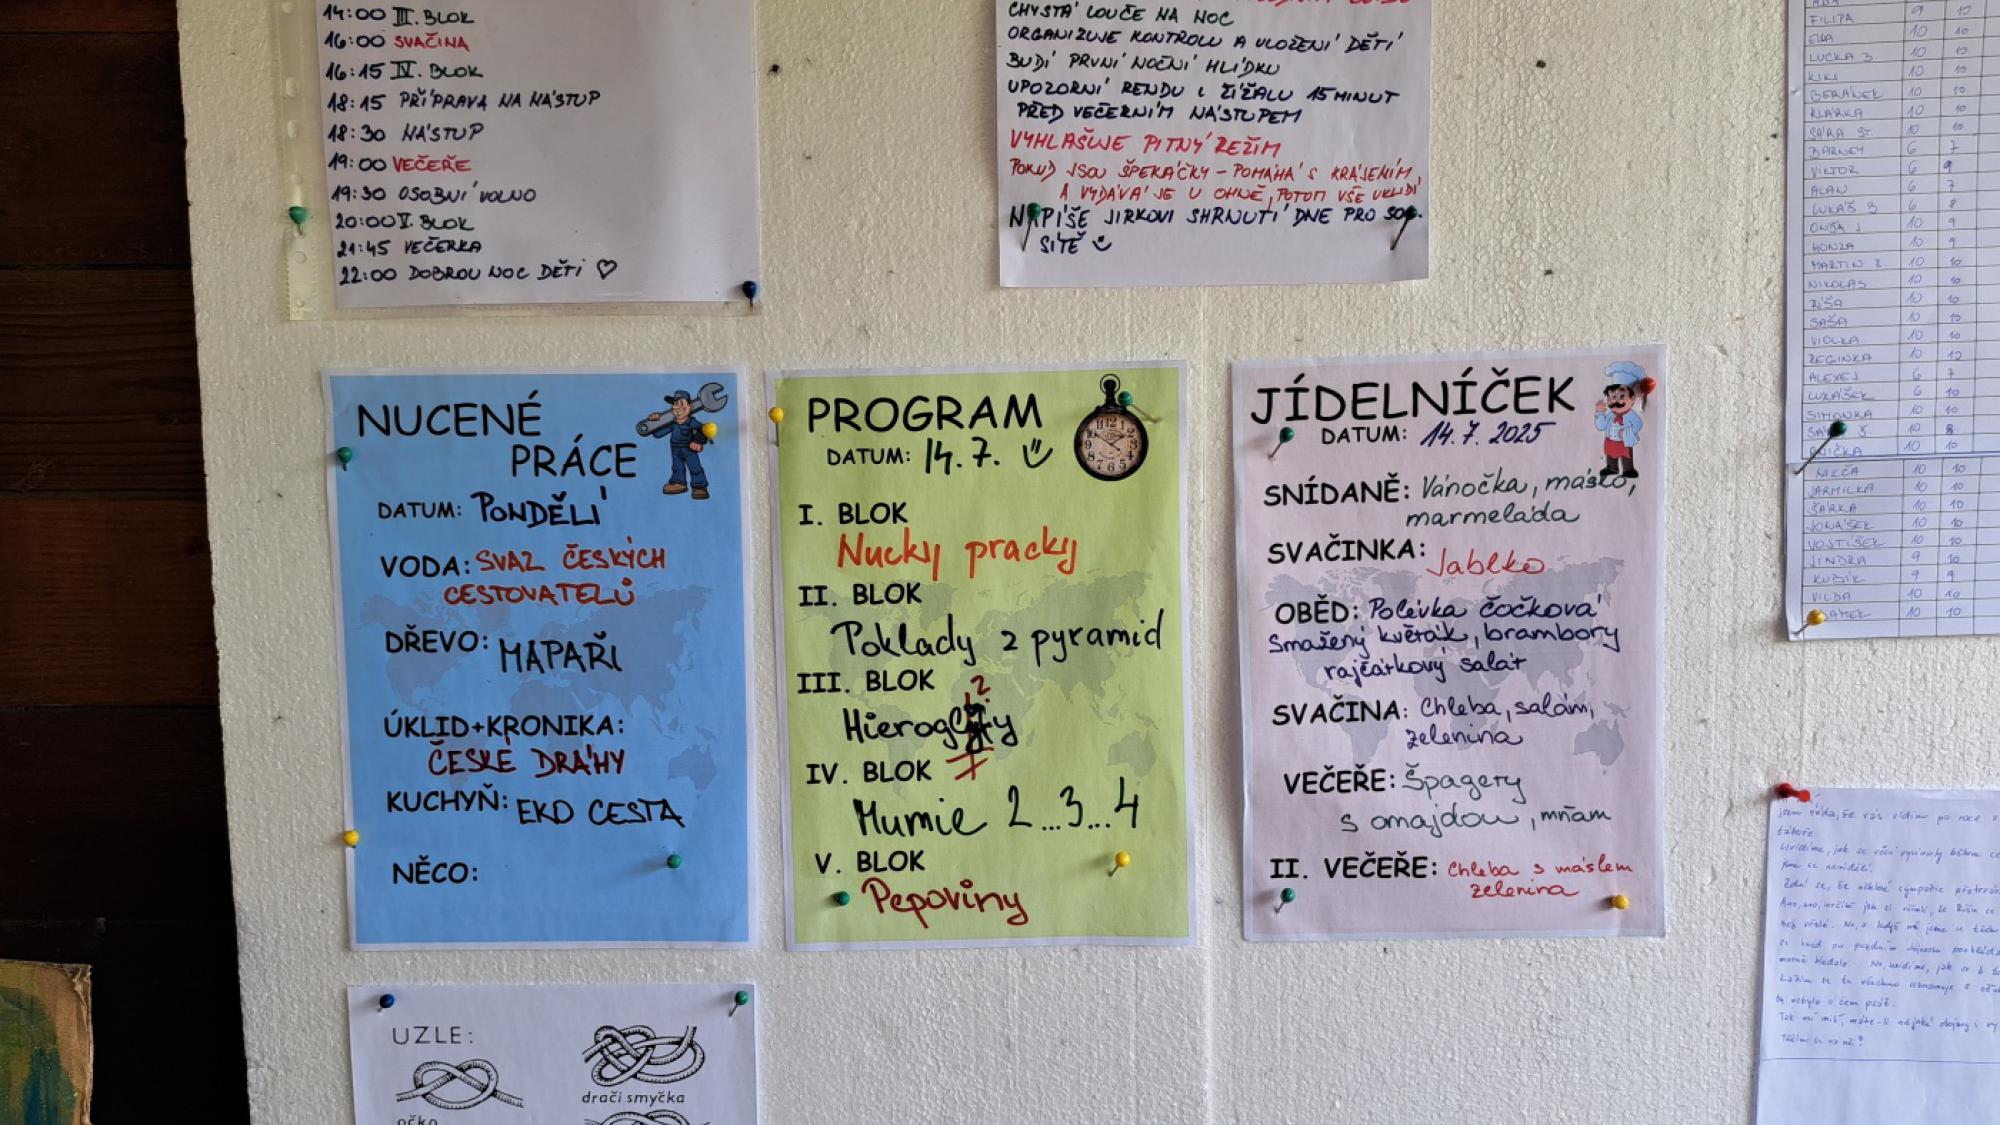 14:00 III. BLOK
16:00 SVAČINA
16:15 IV. BLOK
18:15 PŘÍPRAVA NA NÁSTUP
18:30 NÁSTUP
19:00 VEČEŘE
19:30 OSOBNÍ VOLNO
20:00 V. BLOK
21:45 VEČERKA
22:00 DOBROU NOC DĚTI ♡
CHYSTÁ LOUČE NA NOC
ORGANIZUJE KONTROLU A ULOŽENÍ DĚTÍ
BUDÍ PRVNÍ NOČNÍ HLÍDKU
UPOZORNÍ RENDU I ŽÍŽALU 15 MINUT
PŘED VEČERNÍM NÁSTUPEM
VYHLAŠUJE PITNÝ REŽIM
POKUD JSOU ŠPEKÁČKY - POMÁHÁ S KRÁJENÍM
A VYDÁVÁ JE U OHNĚ, POTOM VŠE UKLIDÍ
NAPÍŠE JIRKOVI SHRNUTÍ DNE PRO SOC.
SÍTĚ
FILIPA 9 10
ELLA 10 10
LUCKA B. 10 10
KIKI 10 10
BERÁNEK 10 10
KLÁRKA 10 10
SÁRA ST. 10 10
BARNEY 6 7
VIKTOR 6 9
ALAN 6 7
LUKÁŠ B 6 8
ONDRA J 10 9
HONZA 10 9
MARTIN R. 10 10
NIKOLAS 10 10
RÍŠA 10 10
SAŠA 10 10
VIOLKA 10 10
REGINKA 10 10
ALEXEJ 6 7
LUKÁŠEK 6 10
SIMONKA 10 10
10 8
ANIČKA 10 10
NIKČA 10 10
JARMILKA 10 10
ŠÁRKA 10 10
JONÁŠEK 10 10
VOJTÍŠEK 10 10
JINDRA 9 10
KUBÍK 9 9
VILDA 10 10
ADÁMEK 10 10
NUCENÉ
PRÁCE
DATUM: PONDĚLÍ
VODA: SVAZ ČESKÝCH
CESTOVATELŮ
DŘEVO: MAPAŘI
ÚKLID+KRONIKA:
ČESKÉ DRÁHY
KUCHYŇ: EKO CESTA
NĚCO:
PROGRAM
DATUM: 14. 7.
I. BLOK
Nucky pracky
II. BLOK
Poklady z pyramid
III. BLOK
Hieroglyfy
IV. BLOK
Mumie 2...3...4
V. BLOK
Pepoviny
JÍDELNÍČEK
DATUM: 14. 7. 2025
SNÍDANĚ: Vánočka, máslo,
marmeláda
SVAČINKA: Jablko
OBĚD: Polévka čočková
Smažený květák, brambory
rajčátkový salát
SVAČINA: Chleba, salám,
zelenina
VEČEŘE: Špagety
s omajdou, mňam
II. VEČEŘE: Chleba s máslem
zelenina
UZLE:
dračí smyčka
očko
jsem ráda, že vás vidím po roce v
táboře.